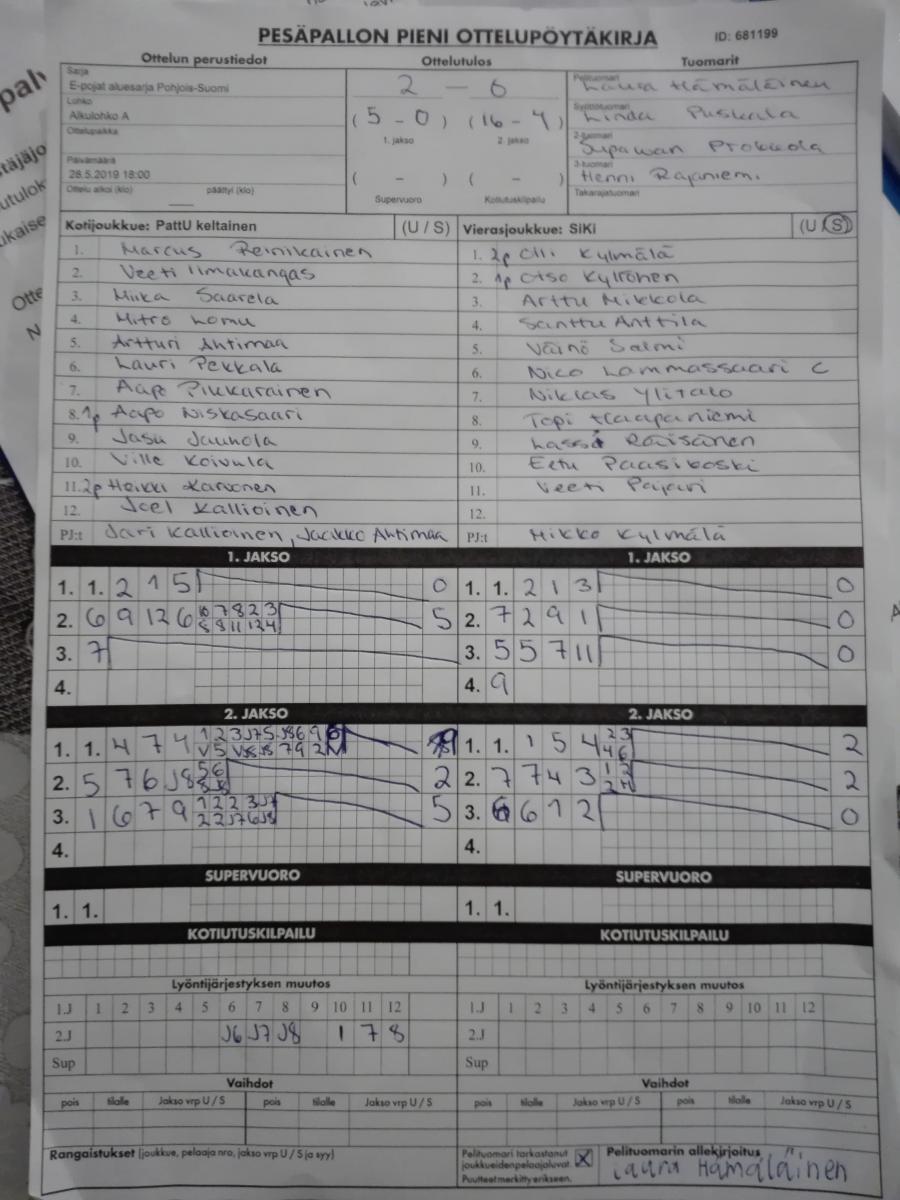 PESÄPALLON PIENI OTTELUPÖYTÄKIRJA ID: 681199
Ottelun perustiedot Ottelutulos Tuomarit
Sarja
E-pojat aluesarja Pohjois-Suomi
Lohko
Alkulohko A
Ottelupaikka
Päivämäärä
28.5.2019 18:00
Ottelu alkoi (klo) päättyi (klo)
2 - 6
(5 - 0) (16 - 4)
1. jakso 2. jakso
( - ) ( - )
Supervuoro Kotiutuskilpailu
Pelituomari
Laura Hämäläinen
Syöttötuomari
Linda Puskala
2-tuomari
Supawan Prokkola
3-tuomari
Henni Rajaniemi
Takarajatuomari
Kotijoukkue: PattU keltainen (U / S) Vierasjoukkue: SiKi (U / S)
1. Marcus Reinikainen 1. 2p Olli Kylmälä
2. Veeti Ilmakangas 2. 1p Otso Kyllönen
3. Miika Saarela 3. Arttu Mikkola
4. Mitro Lomu 4. Santtu Anttila
5. Artturi Ahtimaa 5. Väinö Salmi
6. Lauri Pekkala 6. Nico Lammassaari C
7. Aapo Pikkarainen 7. Niklas Ylitalo
8. 1p Aapo Niskasaari 8. Topi Haapaniemi
9. Jasu Jauhola 9. Lassi Räisänen
10. Ville Koivula 10. Eetu Paasikoski
11. 2p Heikki Karvonen 11. Veeti Pajari
12. Joel Kallioinen 12.
PJ:t Jari Kallioinen, Jaakko Ahtimaa PJ:t Mikko Kylmälä
1. JAKSO 1. JAKSO
1. 1. 2 1 5 0 1. 1. 2 1 3 0
2. 6 9 12 6 10 7 8 2 3 5 2. 7 2 9 1 0
8 9 11 12 4
3. 7 3. 5 5 7 11 0
4. 4. 9
2. JAKSO 2. JAKSO
1. 1. 4 7 4 1 2 3 J7 5 J8 6 9 9 1. 1. 1 5 4 2 3 2
4 6
2. 5 7 6 J8 5 6 2 2. 7 7 4 3 1 2 2
2 4
3. 1 6 7 9 1 2 2 3 J7 5 3. 6 6 1 2 0
2 2 J7 6 J8
4. 4.
SUPERVUORO SUPERVUORO
1. 1. 1. 1.
KOTIUTUSKILPAILU KOTIUTUSKILPAILU
Lyöntijärjestyksen muutos Lyöntijärjestyksen muutos
1.J 1 2 3 4 5 6 7 8 9 10 11 12 1.J 1 2 3 4 5 6 7 8 9 10 11 12
2.J J6 J7 J8 1 7 8 2.J
Sup Sup
Vaihdot Vaihdot
pois tilalle Jakso vrp U / S pois tilalle Jakso vrp U / S pois tilalle Jakso vrp U / S pois tilalle Jakso vrp U / S
Rangaistukset (joukkue, pelaaja nro, jakso vrp U / S ja syy)
Pelituomari tarkastanut
joukkueiden pelaajaluvat.
Puutteet merkitty erikseen.
X
Pelituomarin allekirjoitus
Laura Hämäläinen